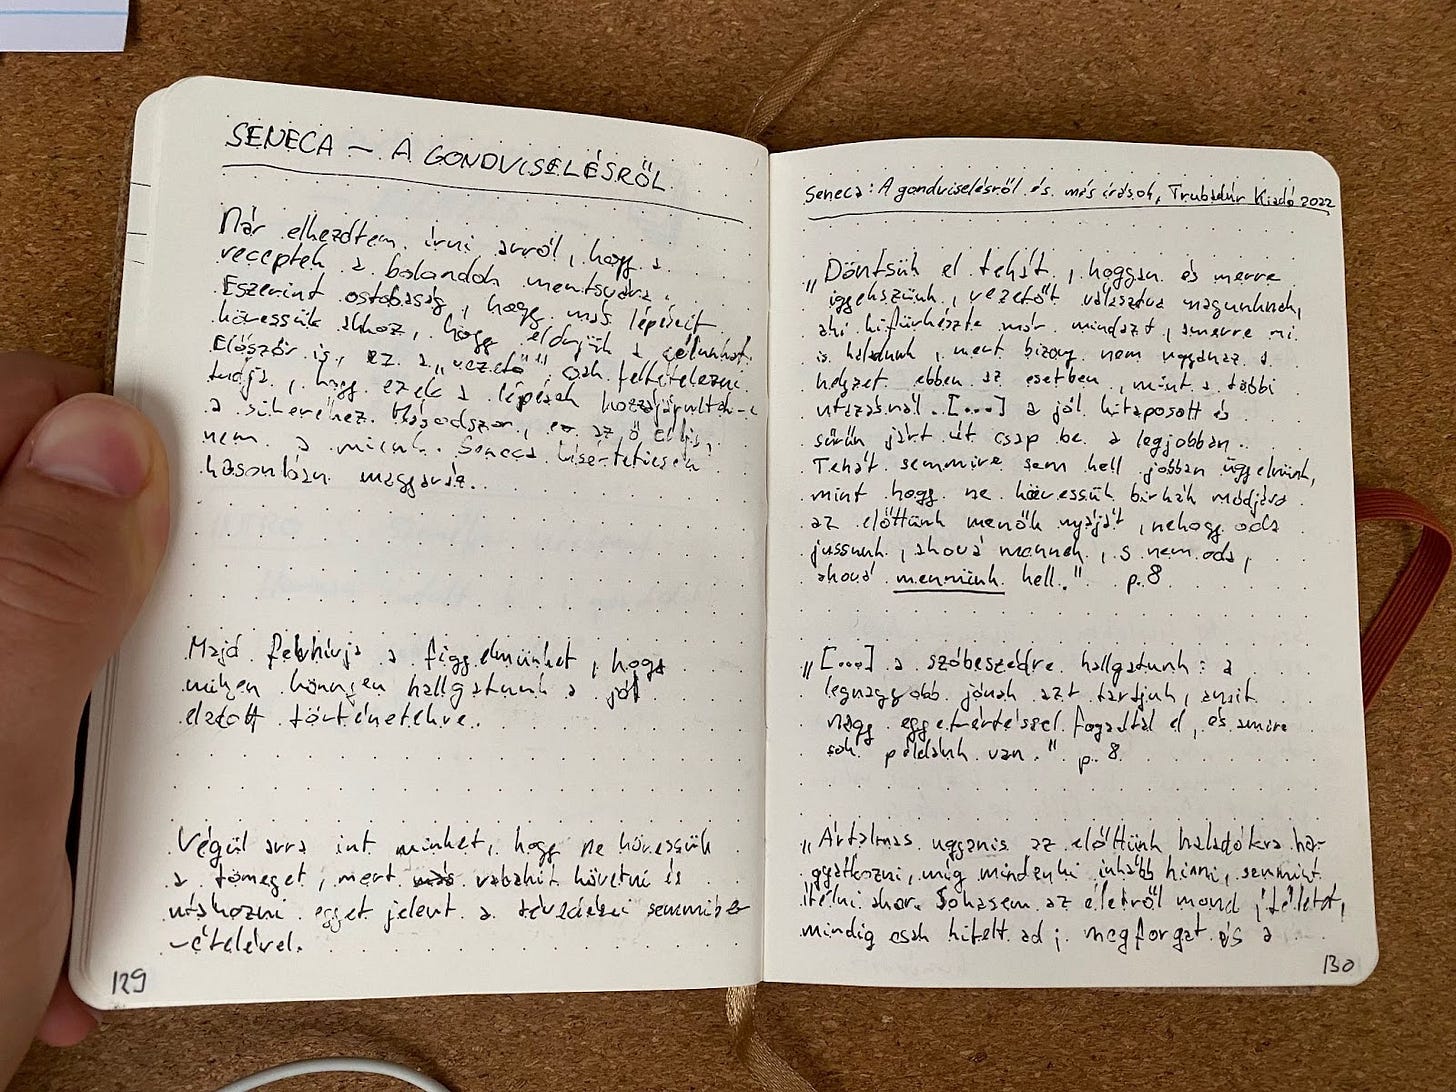 SENECA – A GONDVISELÉSRŐL
Már elkezdtem írni arról, hogy a
receptek a bolondok mentsvára.
Eszerint ostobaság, hogy más lépéseit
kövessük ahhoz, hogy elérjük a célunkat.
Először is, ez a „vezető" csak feltételezni
tudja, hogy ezek a lépések hozzájárultak-e
a sikeréhez. Másodszor, ez az ő célja,
nem a mienk. Seneca kísértetiesen
hasonlóan magyaráz.
Majd felhívja a figyelmünket, hogy
milyen könnyen hallgatunk a jól
eladott történetekre.
Végül arra int minket, hogy ne kövessük
a tömeget, mert valakit követni és
utánozni egyet jelent a tévedései semmibe
-vételével.
129
Seneca: A gondviselésről és más írások, Trubadúr Kiadó 2022
„Döntsük el tehát, hoggan és merre
igyekszünk, vezetőt választva magunknak,
aki kifürkészte már mindazt, amerre mi
is haladunk, mert bizony nem ugyanaz a
helyzet ebben az esetben, mint a többi
utazásnál. [...] a jól kitaposott és
sűrűn járt út csap be a legjobban.
Tehát semmire sem kell jobban ügyelnünk,
mint hogy ne kövessük birkák módjára
az előttünk menők nyáját, nehogy oda
jussunk, ahová mennek, s nem oda,
ahová mennünk kell." p. 8
„[...] a szóbeszédre hallgatunk: a
legnagyobb jónak azt tartjuk, amit
nagy egyetértéssel fogadtak el, és amire
sok példánk van." p. 8
„Ártalmas ugyanis az előttünk haladókra ha-
gyatkozni, míg mindenki inkább hinni, semmint
ítélni akar. Sohasem az életről mond ítéletet,
mindig csak hitelt ad; megforgat és a
130